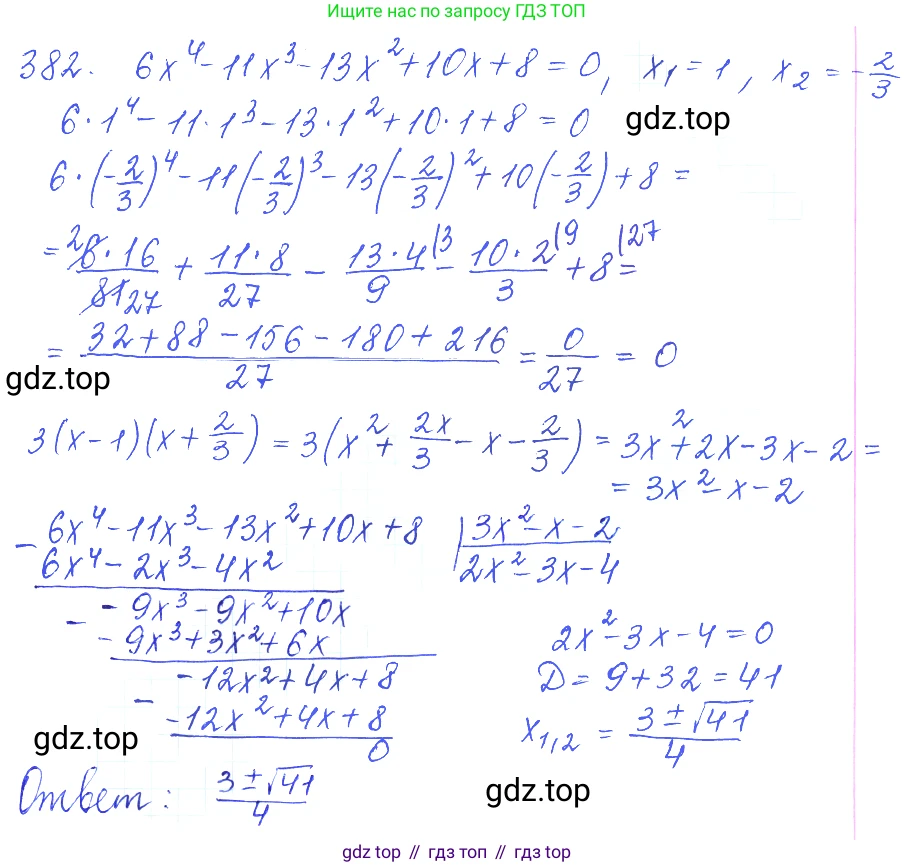 Ищите нас по запросу ГДЗ ТОП
382. 6x⁴-11x³-13x²+10x+8=0, x₁=1, x₂=-2/3
6·1⁴-11·1³-13·1²+10·1+8=0
gdz.top
6·(-2/3)⁴-11(-2/3)³-13(-2/3)²+10(-2/3)+8=
= ²6·16/81 27 + 11·8/27 - 13·4/9 |3 - 10·2/3 |9 + 8 |27 =
= (32+88-156-180+216)/27 = 0/27 = 0
gdz.top
3(x-1)(x+2/3) = 3(x²+2x/3-x-2/3) = 3x²+2x-3x-2=
=3x²-x-2
-6x⁴-11x³-13x²+10x+8 |3x²-x-2
6x⁴-2x³-4x² 2x²-3x-4
- -9x³-9x²+10x
-9x³+3x²+6x
2x²-3x-4=0
- -12x²+4x+8
D=9+32=41
-12x²+4x+8
x₁,₂ = (3±√41)/4
0
gdz.top
Ответ: (3±√41)/4
gdz.top
gdz.top // гдз топ // гдз.top